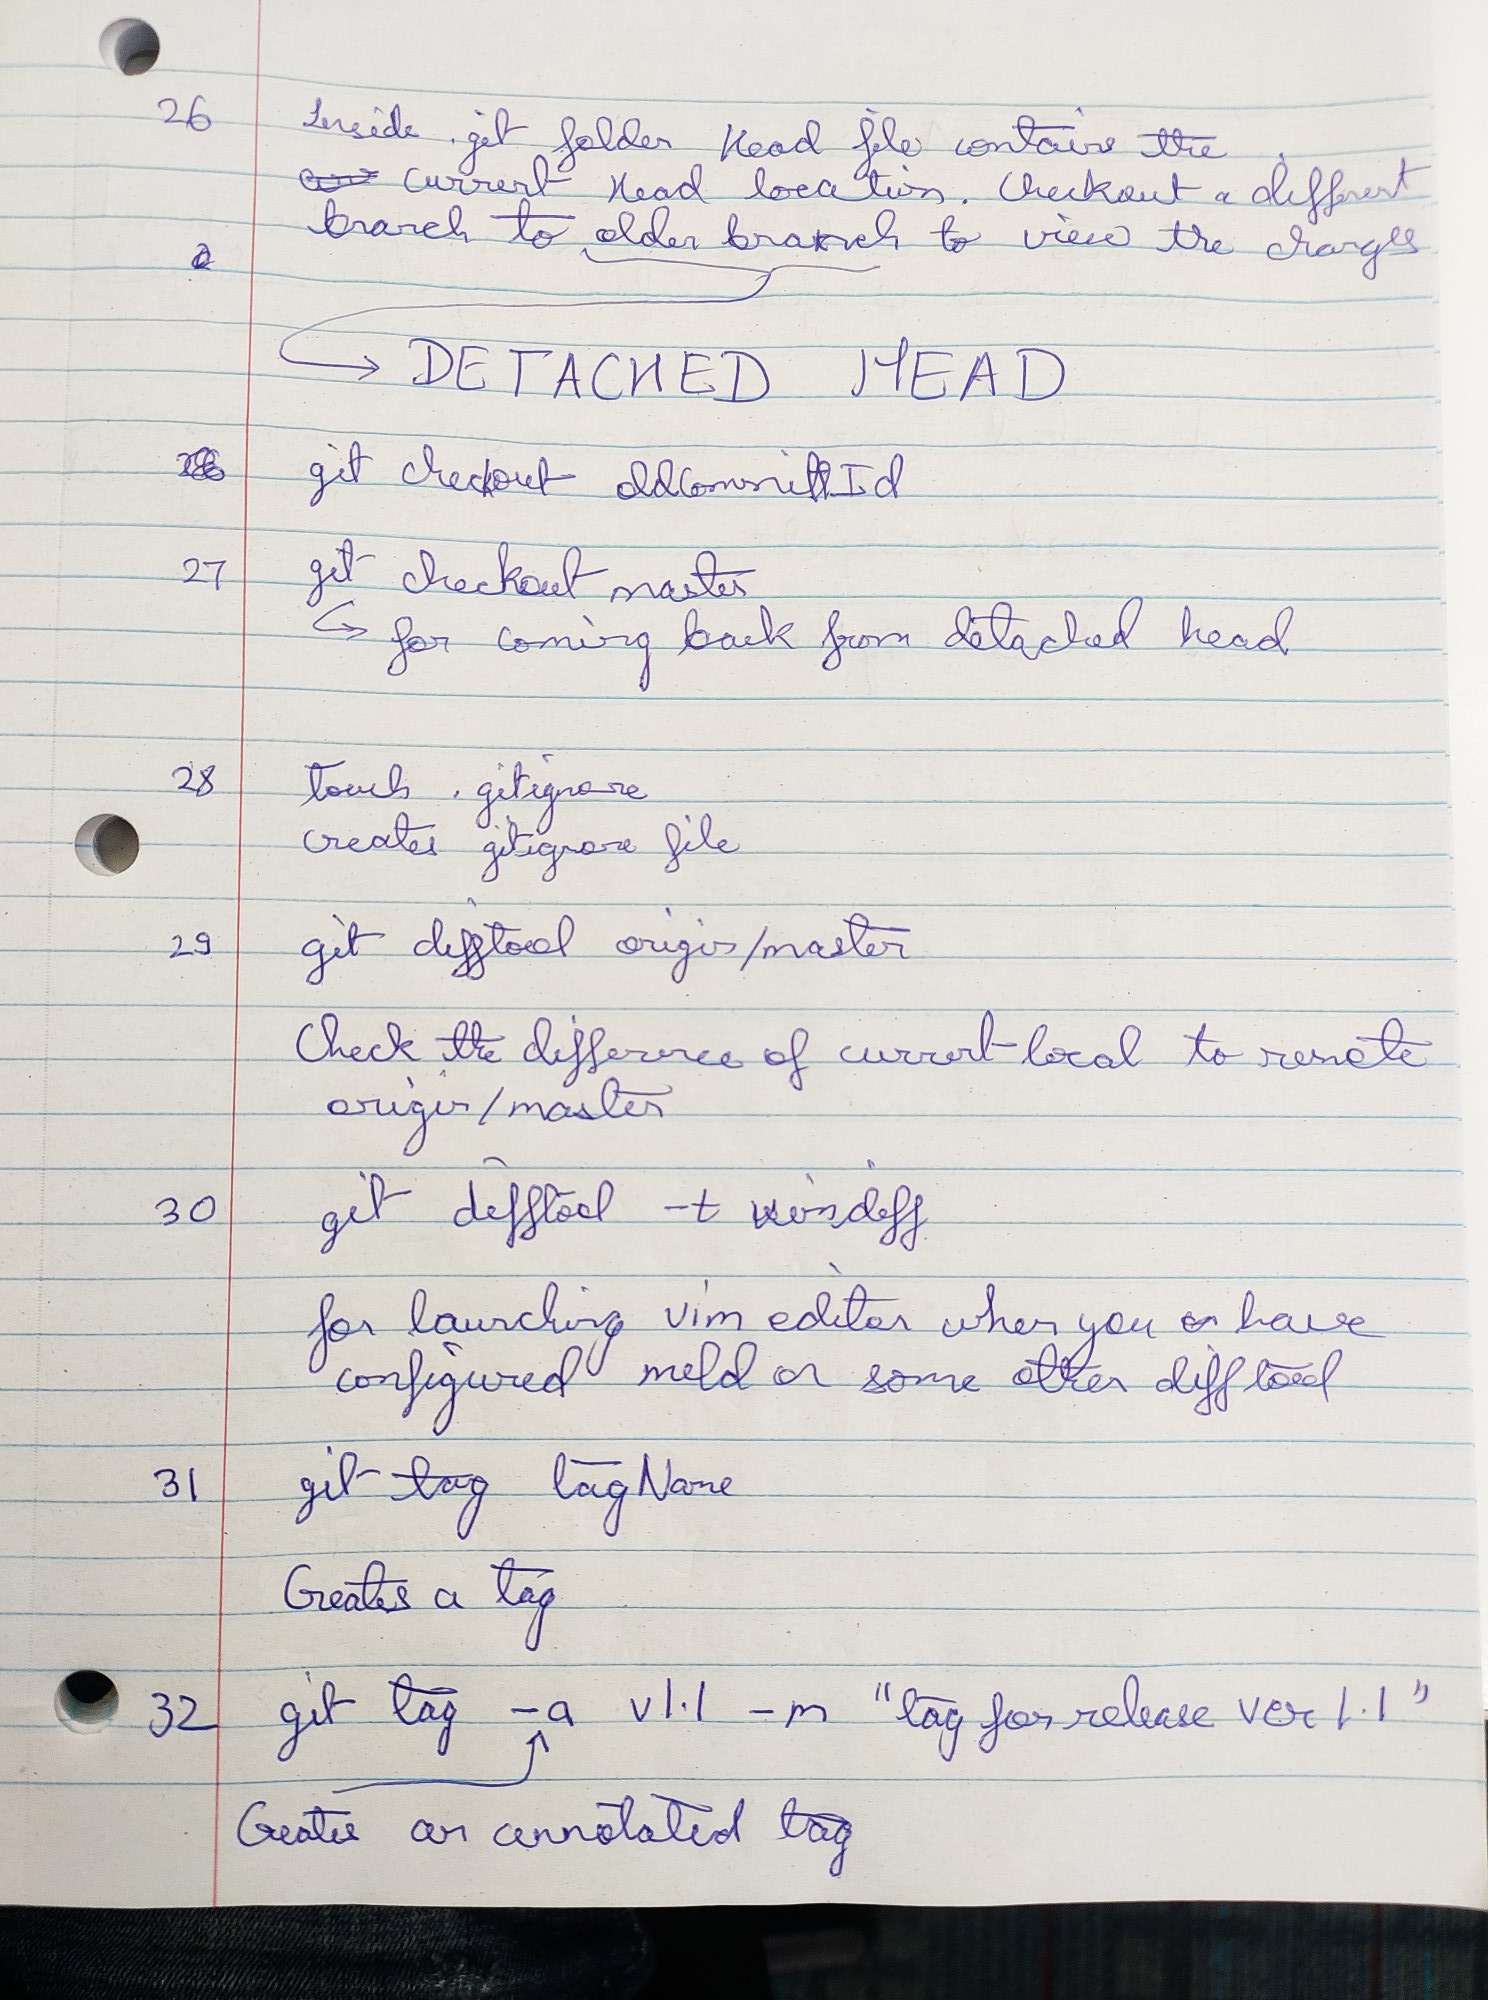 26 Inside .git folder Head file contains the
current Head location. Checkout a different
branch to older branch to view the changes
→ DETACHED HEAD
git checkout oldCommitId
27 git checkout master
↳ for coming back from detached head
28 touch .gitignore
creates gitignore file
29 git difftool origin/master
Check the difference of current local to remote
origin/master
30 git difftool -t vimdiff
for launching vim editor when you have
configured meld or some other difftool
31 git tag tagName
Creates a tag
32 git tag -a v1.1 -m "tag for release ver 1.1"
Creates an annotated tag